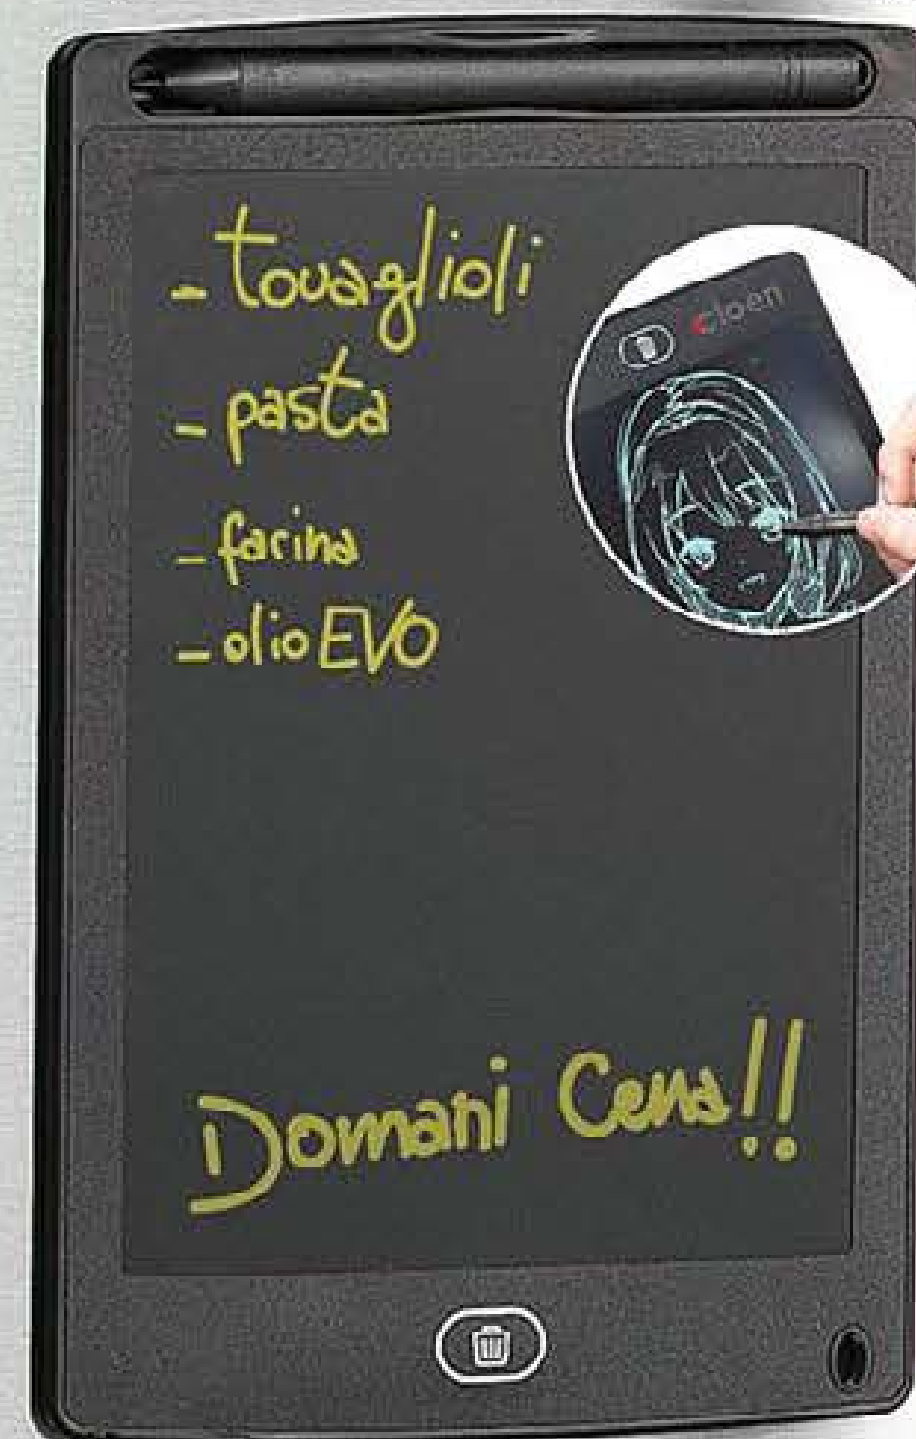 - tovaglioli
- pasta
- farina
- olio EVO
cloen
Domani Cena!!